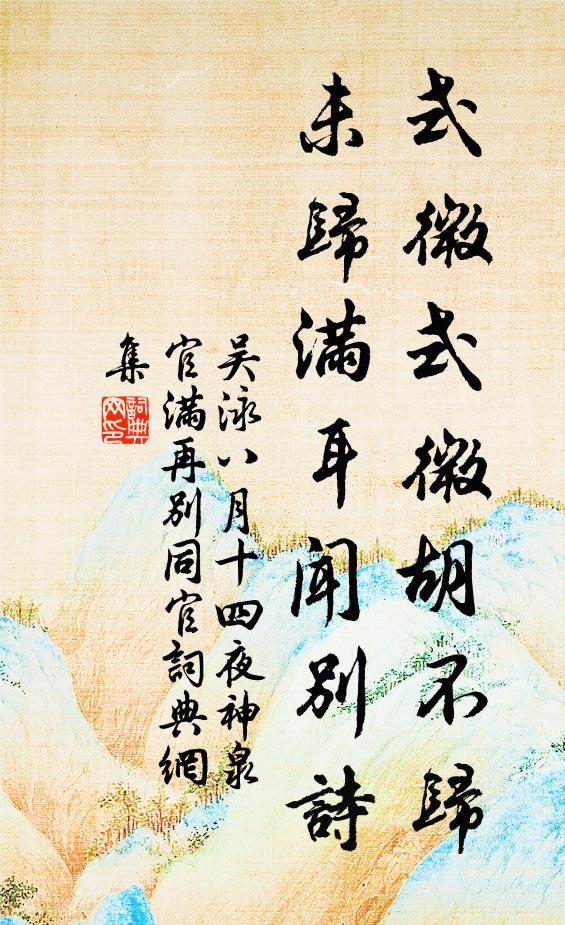 式微式微胡不歸
未歸滿耳聞別詩
吴泳八月十四夜神泉
官滿再別同官詞典網
集
詞典
网印